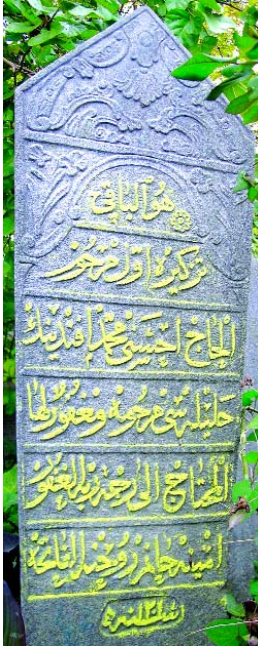 هو الباقى
اول مرحوم
الحاج محمد افندينك
حليله سى مرحومه و مغفور لها
المحتاج الى رحمة ربه الغفور
امينه خانم الفاتحه
سنه